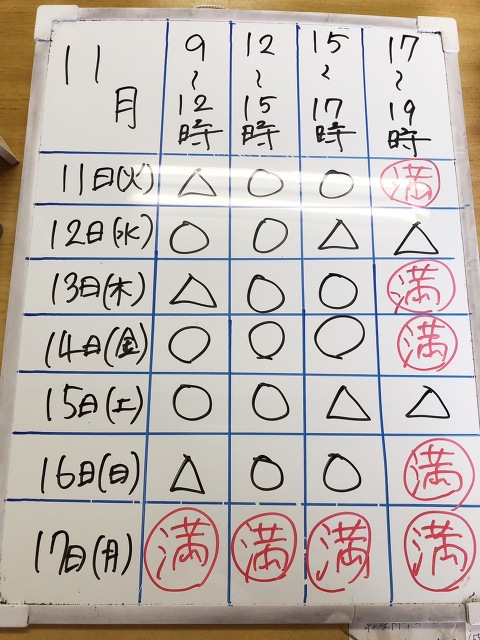 11月 9〜12時 12〜15時 15〜17時 17〜19時
11日(火) △ ○ ○ 満
12日(水) ○ ○ △ △
13日(木) △ ○ ○ 満
14日(金) ○ ○ ○ 満
15日(土) ○ ○ △ △
16日(日) △ ○ ○ 満
17日(月) 満 満 満 満